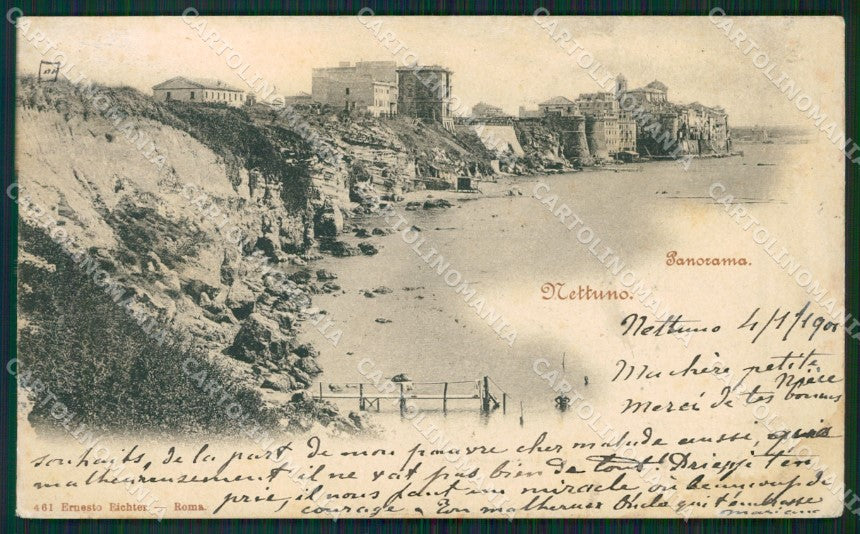 Panorama.
Nettuno.
Nettuno 4/1/1901
Ma chère petite
Nièce
Merci de tes bonnes
souhaits, de la part de mon pauvre cher malade aussi, qui
malheureusement il ne vat pas bien de tout! t'en
prie, il nous faut un miracle ou beaucoup de
courage a ton malheureux Oncle qui t'embrasse
Mariano
461 Ernesto Eichter Roma.
CARTOLINOMANIA